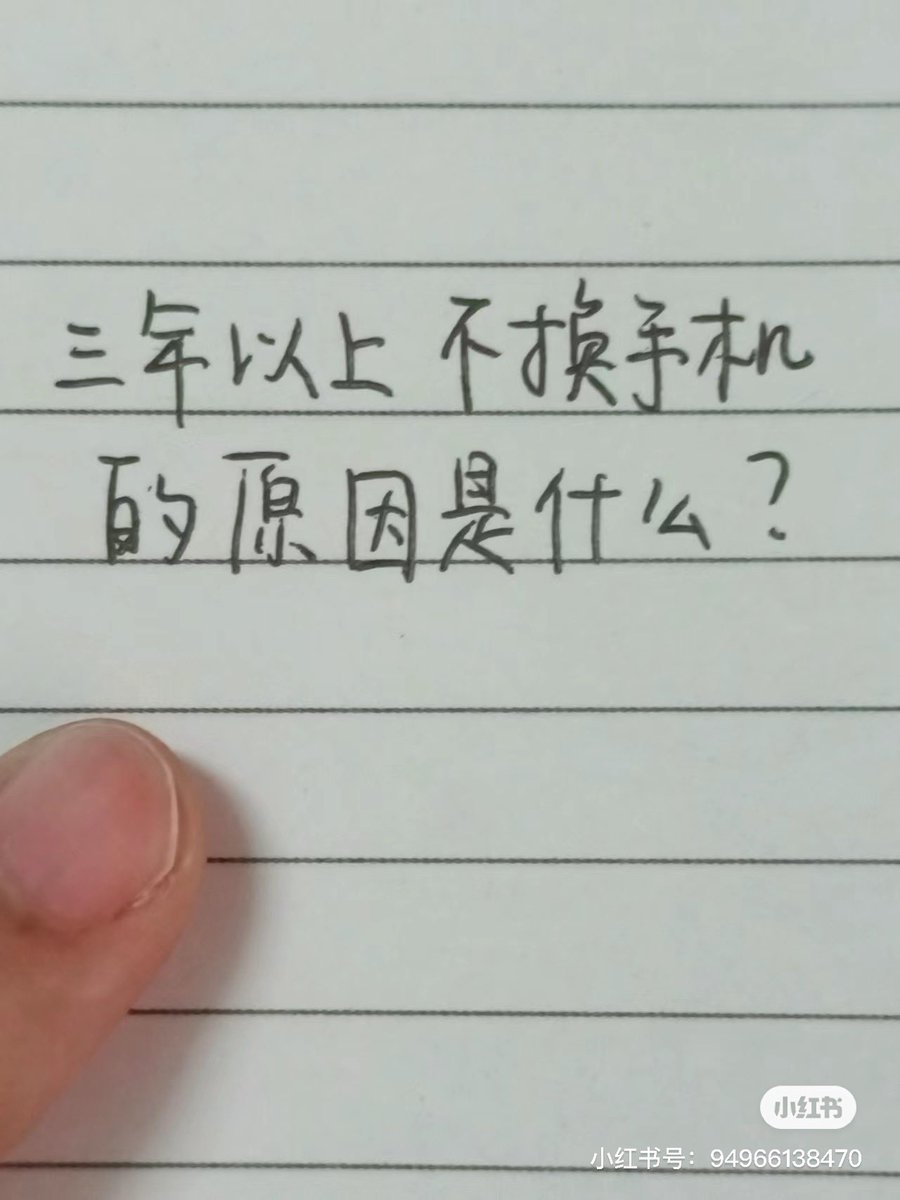 三年以上 不换手机
的原因是什么?
小红书
小红书号：94966138470